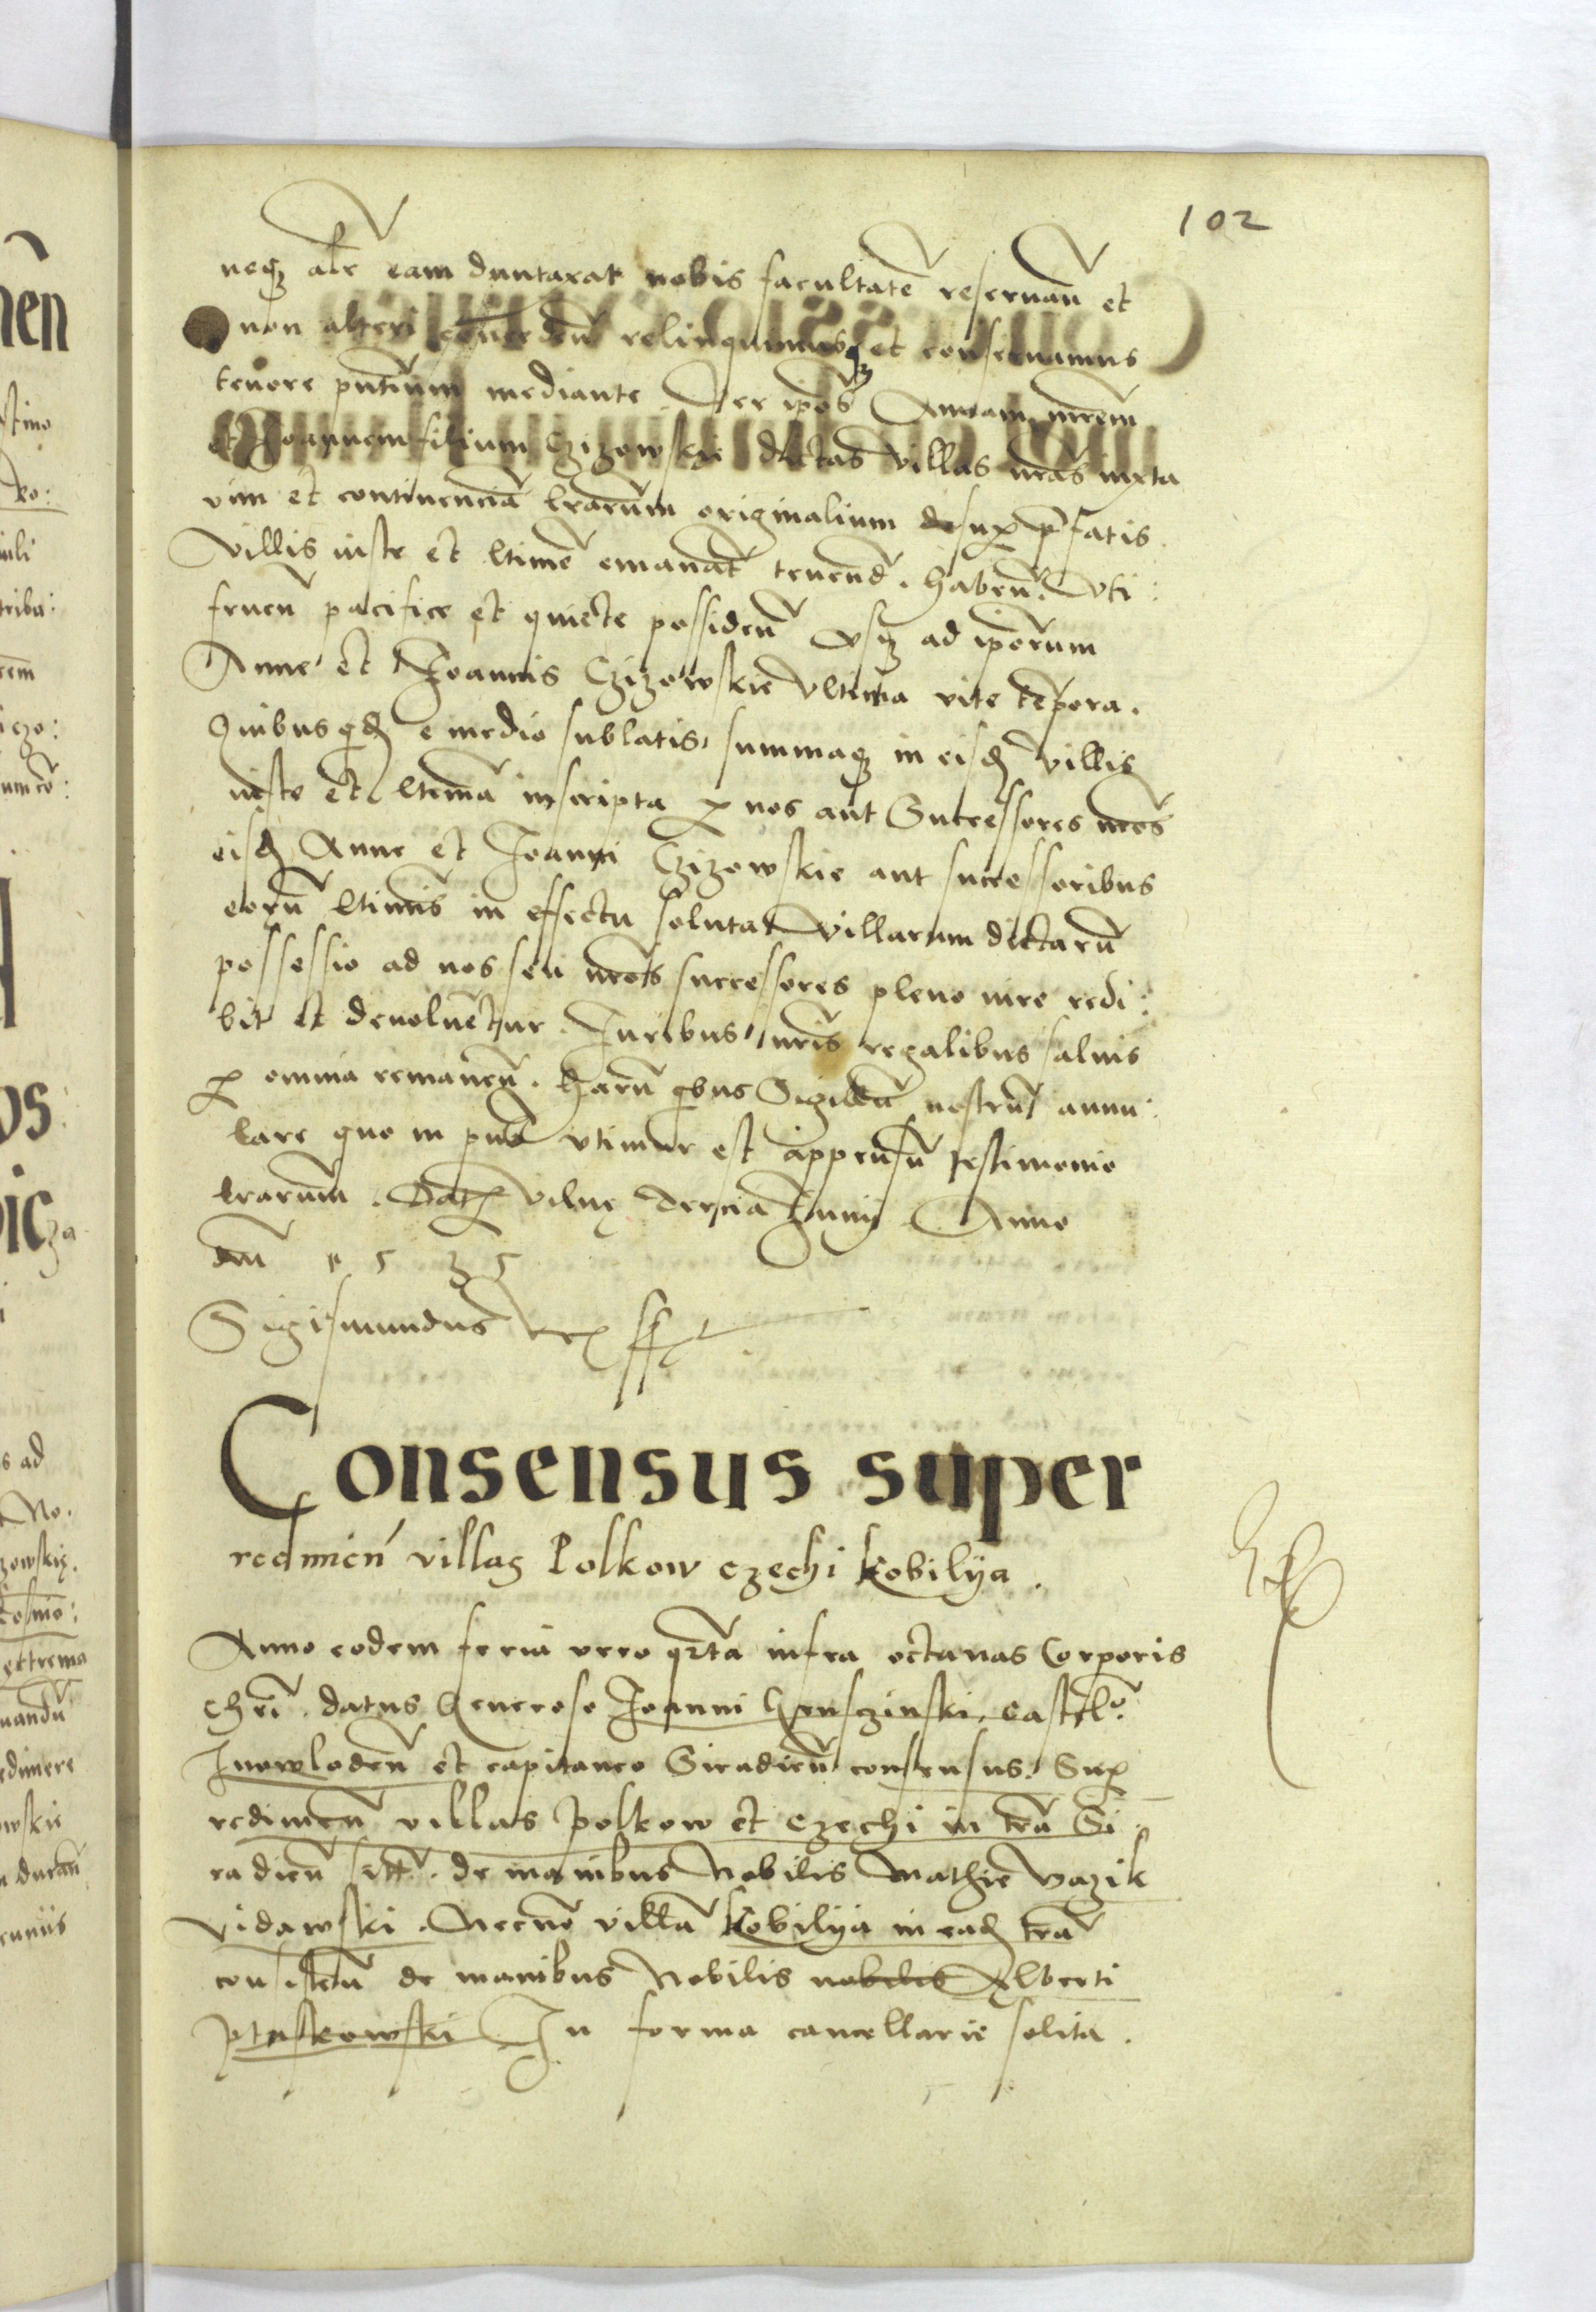 102
neqȝ alr̄ eam duntaxat nobis facultatē reseruan̄ et
non alteri conceden̄ relinquimusqȝ et conseruamus
tenore pn̄tium mediante. Per ip̄os Annam mr̄em
et Joannem filium Czizowskie dictas villas nr̄as iuxta
vim et continenciā lr̄arum originalium desuper p̄fatis
villis iuste et l̄time emanat̄ tenend̄. Haben̄. Vti:
fruen̄ pacifice et quiete possiden̄ vsqȝ ad ip̄orum
Anne et Joannis Czizowskie vltima vite tēpora.
Quibus qd̄ e medio sublatis, summaqȝ in eisd̄ villis
iuste et l̄tima inscripta per nos aut Successores nr̄os
eisd̄ Anne et Joanni Czizowskie aut successoribus
eorū l̄timis in effectu soluta Villarum dictarū
possessio ad nos seu nr̄os successores pleno iure redi:
bit et deuoluetur. Juribus nr̄is regalibus saluis
per omnia remanen̄. Harū qbus Sigillū nostrū annu:
lare quo in pn̄ti vtimur est appensū testimonio
lr̄arum. Dat̄ Vilnę tercia Junij Anno
dn̄i 1535
Sigismundus Rex sst
Consensus super
redimen̄ villas Polkow czechi kobilÿa.
Anno eodem feria vero qr̄ta infra octauas Corporis
Chr̄i. datus Generoso Joanni Koniesczinski, Castel̄o:
Jnowloden̄ et capitaneo Siradien̄ consensus. Super
redimen̄ villas polkow et czechi in tr̄a Si:
radien̄ sitt̄. de manibus Nobilis Mathie vazik
vidawski. Necnō villā kobilÿa in ead̄ tr̄a
consisten̄ de manibus Nobilis nobilis Alberti
ptaskowski In forma cancellarie solita.